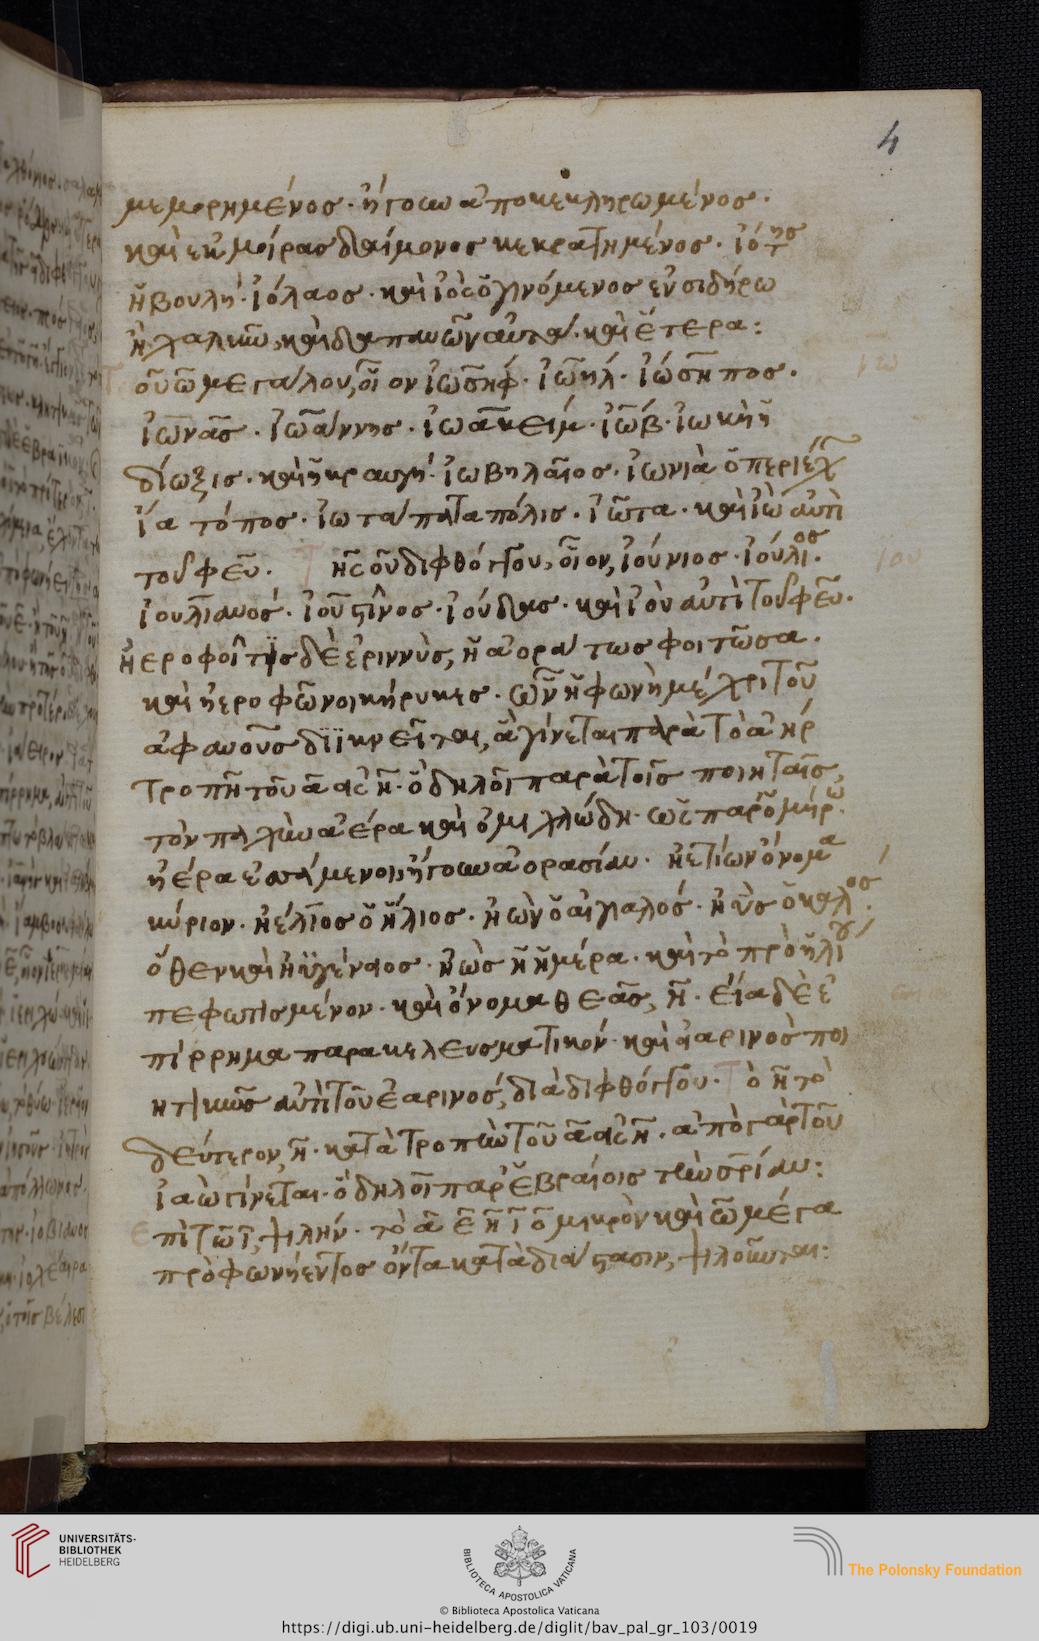 4
μεμορημένος· ἤγουν ἀποκεκληρωμένος·
καὶ ἐκ μοίρας δαίμονος κεκρατημένος· ἰότης
ἡ βουλή· ἰόλαος· καὶ ἰὸς ὁ γινόμενος ἐν σιδήρω
ἢ χαλκῶ, καὶ δαπανῶν αὐτά· καὶ ἕτερα:
οὐ ω μεγάλου, οἷον ἰωσήφ· ἰωήλ· ἰώσηπος·
ἰω
ἰωνᾶς· ἰωάννης· ἰωακείμ· ἰώβ· ἰωκὴ ἡ
δίωξις· καὶ ἡ κραυγή· ἰωβηλαῖος· ἰωνιὰ ὁ περιέχ
ἴα τόπος· ἰωτάπατα πόλις· ἰῶτα· καὶ ἰὼ ἀντὶ
τοῦ φεῦ· ης ου διφθόγγου, οἷον, ἰούνιος· ἰούλιος·
ἰου
ἰουλιανός· ἰουστῖνος· ἰούδας· καὶ ἰοὺ ἀντὶ τοῦ φεῦ·
ἠεροφοῖτις δὲ ἐριννὺς, ἡ ἀοράτως φοιτῶσα·
καὶ ἠερόφωνοι κήρυκες· ὧν ἡ φωνὴ μέχρι τοῦ
ἀφανοῦς διϊκνεῖται, ἃ γίνεται παρὰ τὸ ἀὴρ
τροπῆ τοῦ α εἰς η· ὃ δηλοῖ παρὰ τοῖς ποιηταῖς,
τὸν παχὺν ἀέρα καὶ ὁμιχλώδη· ὡς παρ' ὁμήρω·
ἠέρα ἑσσάμενοι, ἤγουν ἀορασίαν· ἠετίων ὄνομα
κύριον· ἠέλιος ὁ ἥλιος· ἠὼν ὁ αἰγιαλός· ἠῢς ὁ καλός·
ὅθεν καὶ ἠϋγένειος· ἠὼς ἡ ἡμέρα· καὶ τὸ πρὸ ἡλίου
πεφωτισμένον· καὶ ὄνομα θεᾶς, η· εἶα δὲ ἐ
πίρρημα παρακελευσματικόν· καὶ εἰαρινὸς ποι
ητικῶς ἀντὶ τοῦ ἐαρινός, διὰ διφθόγγου· τὸ η τὸ
δεύτερον, η· κατὰ τροπὴν τοῦ α εἰς η· ἀπὸ γὰρ τοῦ
ἰαὼ γίνεται· ὃ δηλοῖ παρ' ἑβραίοις τὴν σρίαν:
ἐπὶ τῶ ι, ψιλήν· τὸ α ε η ι ο μικρὸν καὶ ω μέγα
πρὸ φωνήεντος ὄντα κατὰ διάστασιν, ψιλοῦνται:
UNIVERSITÄTS-
BIBLIOTHEK
HEIDELBERG
BIBLIOTECA APOSTOLICA VATICANA
The Polonsky Foundation
© Biblioteca Apostolica Vaticana
https://digi.ub.uni-heidelberg.de/diglit/bav_pal_gr_103/0019